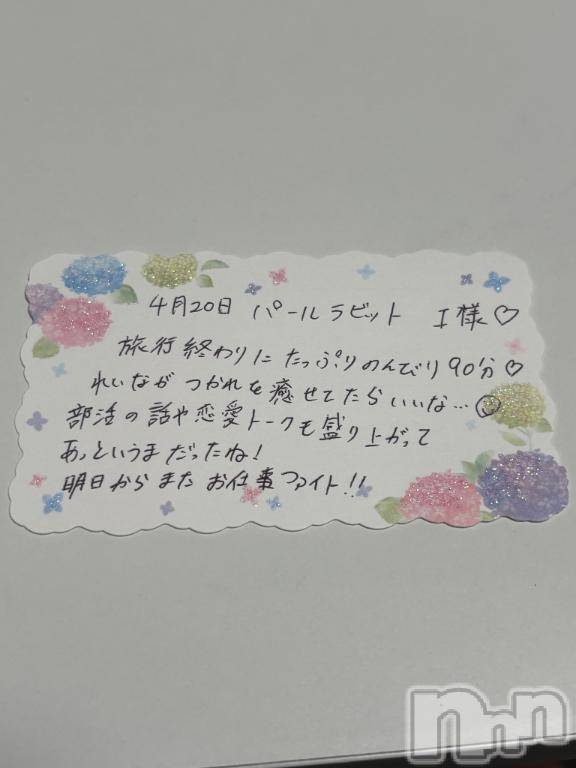 4月20日 パールラビット I様♡
旅行終わりにたっぷりのんびり90分♡
れいながつかれを癒せてたらいいな…☺
部活の話や恋愛トークも盛り上がって
あっというまだったね!
明日からまたお仕事ファイト!!
nnn